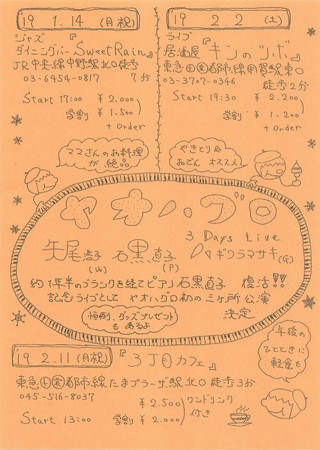 19 1.14 (月祝)
ジャズ
ダイニングバー『Sweet Rain』
JR中央線中野駅北口徒歩
03-6454-0817 7分
Start 17:00 ¥2.000
学割 ¥1.500
+ Order
ママさんのお料理
が絶品
19 2.2 (土)
ライブ
居酒屋『キンのツボ』
東急田園都市線用賀駅東口
03-3707-0346 徒歩2分
Start 19:30 ¥2.200
学割 ¥1.200
+ Order
やきとり&
おでん オススメ
ヤオハ・グロ
3 Days Live
矢尾 石黒直子 ハギワラマサキ(G)
(W) (P)
約1年半のブランクを経てピアノ石黒直子 復活!!
記念ライブとして ヤオハグロ初の三ヶ所公演
決定
恒例、グッズプレゼント
もあるよ
19 2.11 (月祝)
『3丁目カフェ』
東急田園都市線たまプラーザ駅北口徒歩3分
045-516-8037
¥2.500 ワンドリンク
Start 13:00 学割 ¥2.000 付き
午後の
ひとときに
軽食も